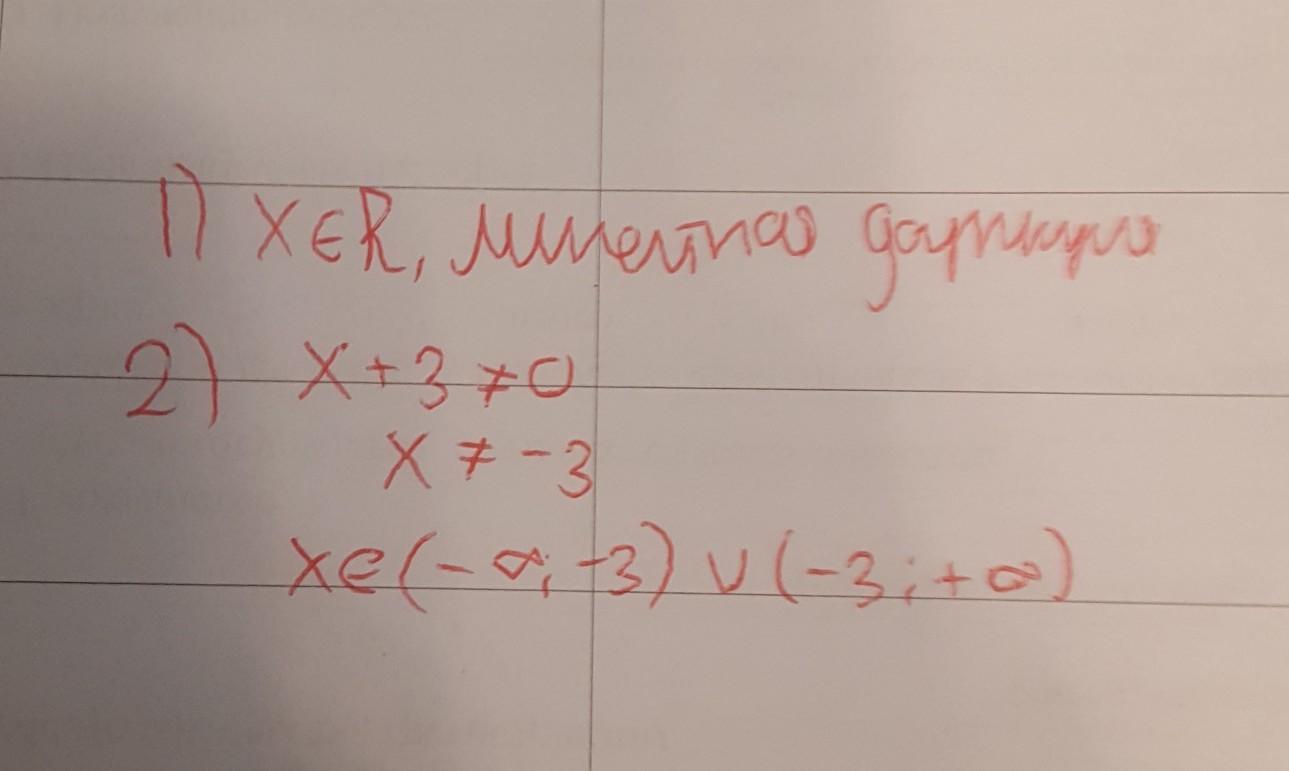 1) x∈R, линейная функция
2) x+3≠0
x≠-3
x∈(-∞;-3)∪(-3;+∞)